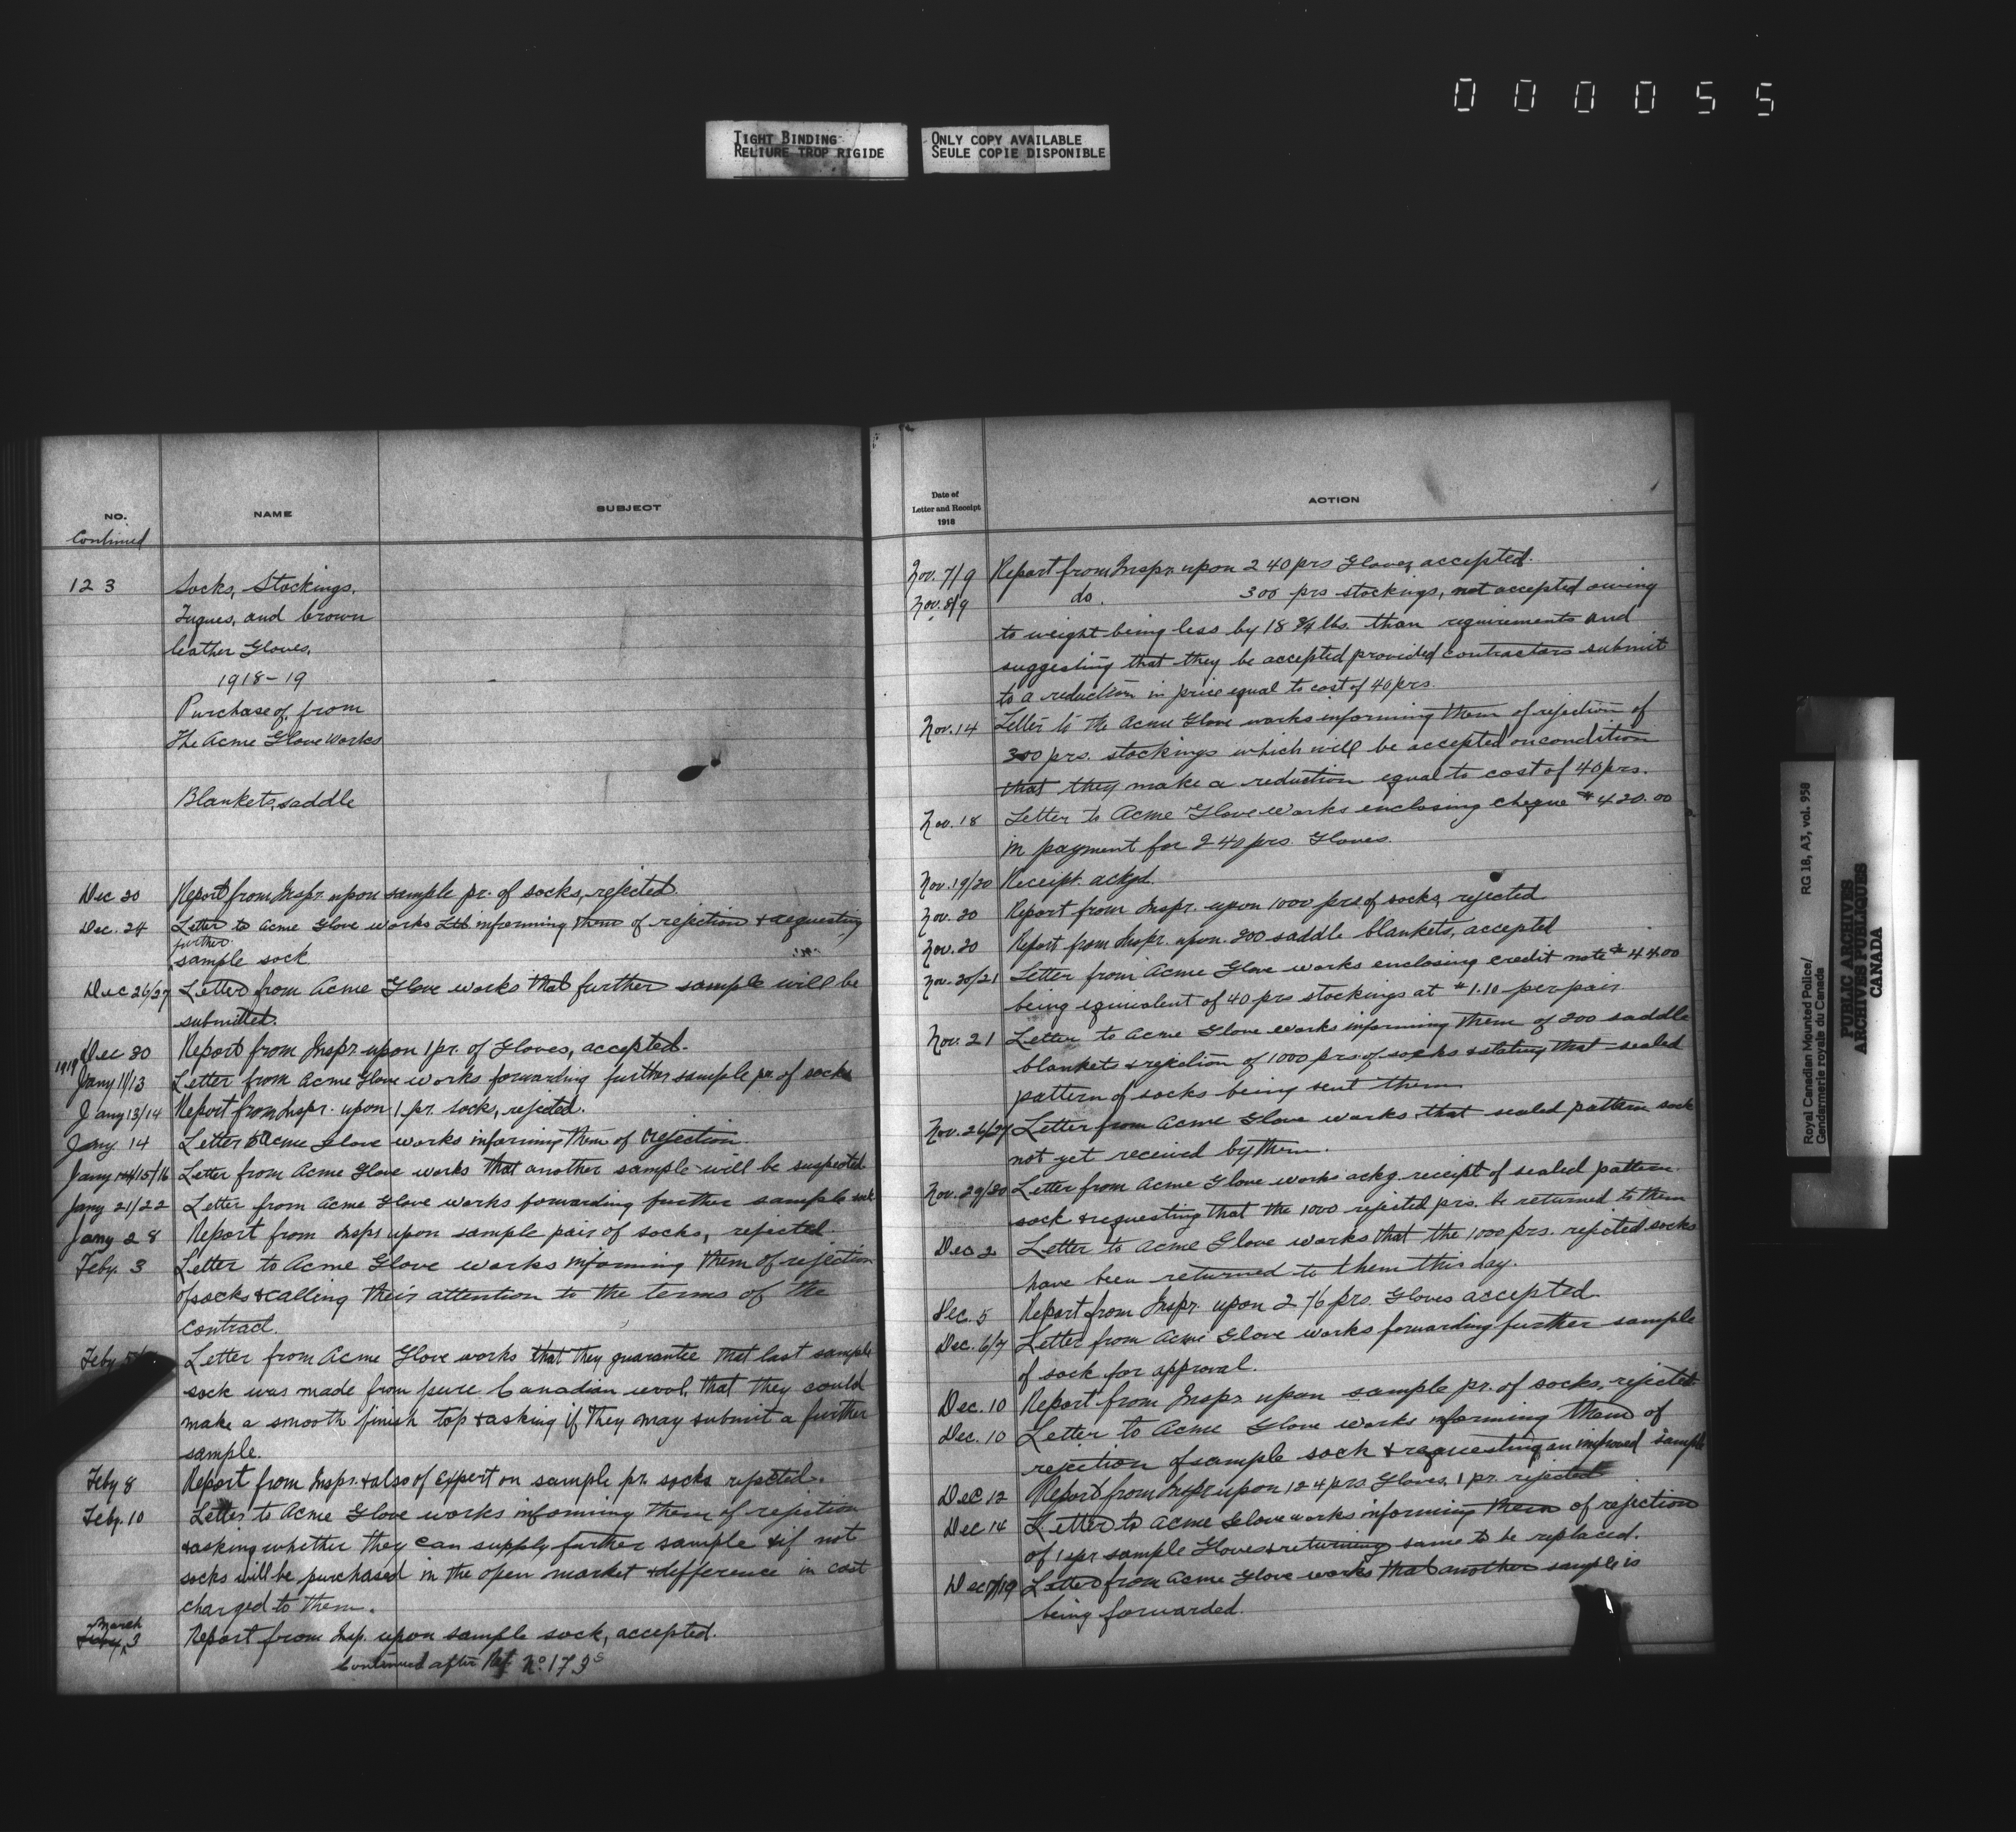 000055
TIGHT BINDING
RELIURE TROP RIGIDE
ONLY COPY AVAILABLE
SEULE COPIE DISPONIBLE
NO.
NAME
SUBJECT
Continued
123
Socks, Stockings,
Tuques, and brown
leather Gloves,
1918-19
Purchase of, from
The Acme Glove Works
Blankets, saddle
Dec 20 Report from Inspr. upon sample pr. of socks, rejected.
Dec. 24 Letter to Acme Glove Works informing them of rejection & requesting
further
sample sock
Dec 26/27 Letter from Acme Glove works that further sample will be
submitted.
Dec 30 Report from Inspr upon 1 pr. of Gloves, accepted.
1919
Jany 11/13 Letter from Acme Glove works forwarding further sample pr. of socks
Jany 13/14 Report from Inspr. upon 1 pr. sock, rejected.
Jany 14 Letter to Acme Glove works informing them of rejection.
Jany 15/16 Letter from Acme Glove works that another sample will be suspected
Jany 21/22 Letter from Acme Glove works forwarding further sample sock
Jany 28 Report from Inspr upon sample pair of socks, rejected.
Feby. 3 Letter to Acme Glove works informing them of rejection
of socks & calling their attention to the terms of the
contract.
Feby Letter from Acme Glove works that they guarantee that last sample
sock was made from pure Canadian wool, that they could
make a smooth finish top & asking if they may submit a further
sample.
Feby 8 Report from Inspr. & also of expert on sample pr. socks rejected.
Feby. 10 Letter to Acme Glove works informing them of rejection
& asking whether they can supply further sample & if not
socks will be purchased in the open market & difference in cost
charged to them.
March
Feby 3 Report from Insp. upon sample sock, accepted.
Continued after Ref No. 173s
Date of
Letter and Receipt
1918
ACTION
Nov. 7/9 Report from Inspr. upon 240 prs Gloves, accepted.
Nov. 8/9 do. 300 prs stockings, not accepted owing
to weight being less by 18 3/4 lbs. than requirements and
suggesting that they be accepted provided contractors submit
to a reduction in price equal to cost of 40 prs.
Nov. 14 Letter to the Acme Glove works informing them of rejection of
300 prs. stockings which will be accepted on condition
that they make a reduction equal to cost of 40 prs.
Nov. 18 Letter to Acme Glove Works enclosing cheque $420.00
in payment for 240 prs. Gloves.
Nov. 19/20 Receipt ackgd.
Nov. 20 Report from Inspr. upon 1000 prs of socks, rejected
Nov. 20 Report from Inspr. upon 200 saddle blankets, accepted
Nov. 20/21 Letter from Acme Glove works enclosing credit note $44.00
being equivalent of 40 prs stockings at $1.10 per pair.
Nov. 21 Letter to Acme Glove works informing them of 200 saddle
blankets & rejection of 1000 prs. of socks & stating that sealed
pattern of socks being sent them
Nov. 26/27 Letter from Acme Glove works that sealed pattern sock
not yet received by them.
Nov. 29/30 Letter from Acme Glove works ackg receipt of sealed pattern
sock & requesting that the 1000 rejected prs. be returned to them
Dec 2 Letter to Acme Glove works that the 1000 prs. rejected socks
have been returned to them this day.
Dec. 5 Report from Inspr. upon 276 prs. Gloves accepted.
Dec. 6/7 Letter from Acme Glove works forwarding further sample
of sock for approval.
Dec. 10 Report from Inspr upon sample pr. of socks, rejected.
Dec. 10 Letter to Acme Glove works informing them of
rejection of sample sock & requesting an improved sample
Dec 12 Report from Inspr upon 124 prs. Gloves, 1 pr. rejected
Dec 14 Letter to Acme Glove works informing them of rejection
of 1 pr sample Gloves & returning same to be replaced.
Dec 17/19 Letter from Acme Glove works that another sample is
being forwarded.
Royal Canadian Mounted Police/
Gendarmerie royale du Canada
RG 18, A3, vol. 958
PUBLIC ARCHIVES
ARCHIVES PUBLIQUES
CANADA